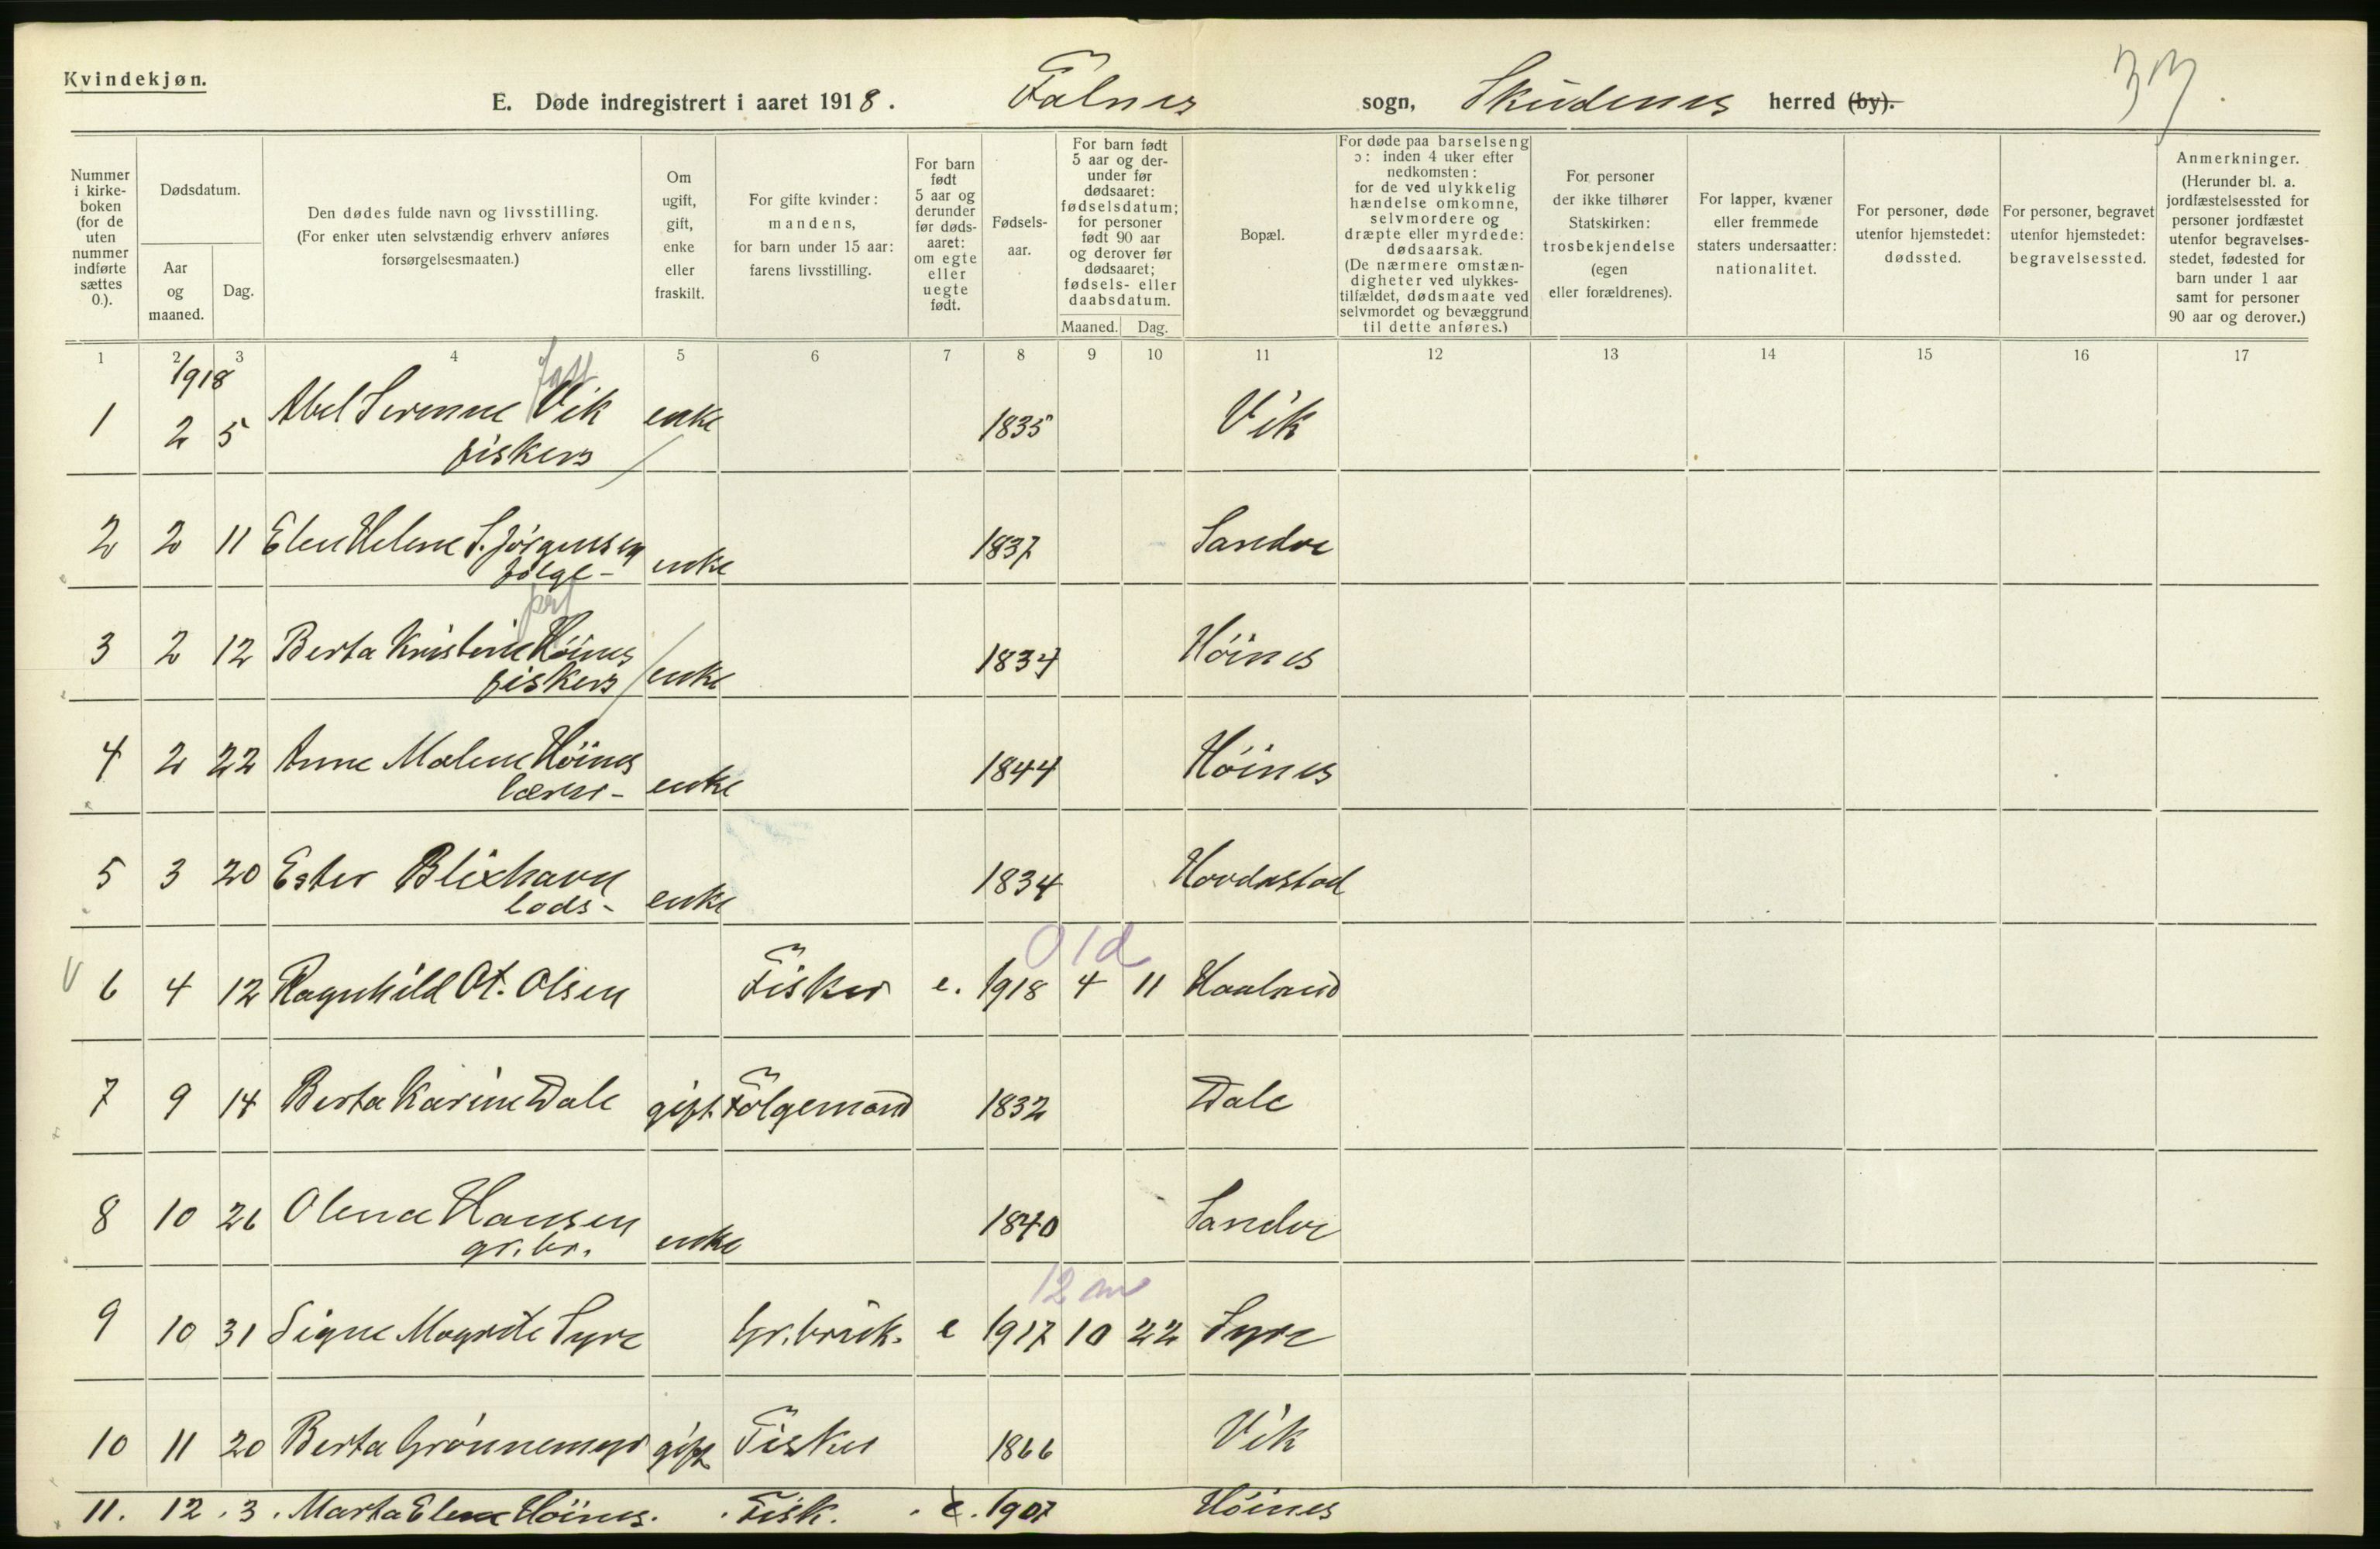 Kvindekjøn.
E. Døde indregistrert i aaret 1918. Falnes sogn, Skudenes herred (by).
33
Nummer i kirke- boken (for de uten nummer indførte sættes 0.).
Dødsdatum.
Aar og maaned.
Dag.
Den dødes fulde navn og livsstilling. (For enker uten selvstændig erhverv anføres forsørgelsesmaaten.)
Om ugift, gift, enke eller fraskilt.
For gifte kvinder: mandens, for barn under 15 aar: farens livsstilling.
For barn født 5 aar og derunder før døds- aaret: om egte eller uegte født.
Fødsels- aar.
For barn født 5 aar og der- under før dødsaaret: fødselsdatum; for personer født 90 aar og derover før dødsaaret; fødsels- eller daabsdatum.
Maaned. Dag.
Bopæl.
For døde paa barselseng ɔ: inden 4 uker efter nedkomsten: for de ved ulykkelig hændelse omkomne, selvmordere og dræpte eller myrdede: dødsaarsak. (De nærmere omstæn- digheter ved ulykkes- tilfældet, dødsmaate ved selvmordet og bevæggrund til dette anføres.)
For personer der ikke tilhører Statskirken: trosbekjendelse (egen eller forældrenes).
For lapper, kvæner eller fremmede staters undersaatter: nationalitet.
For personer, døde utenfor hjemstedet: dødssted.
For personer, begravet utenfor hjemstedet: begravelsessted.
Anmerkninger. (Herunder bl. a. jordfæstelsessted for personer jordfæstet utenfor begravelses- stedet, fødested for barn under 1 aar samt for personer 90 aar og derover.)
1 2 3 4 5 6 7 8 9 10 11 12 13 14 15 16 17
1918
1 2 5 Abel Serenne Vik enke 1835 Vik
fiskers
2 2 11 Elen Helene S. Jørgensen 1837 Sandve
følge- enke
3 2 12 Berta Kristine Høines 1834 Høines
fiskers enke
4 2 22 Anne Malene Høines 1844 Høines
lærer- enke
5 3 20 Ester Blixhavn 1834 Hovdastad
lods- enke
01d
6 4 12 Ragnhild Ot. Olsen Fisker e. 1918 4 11 Haaland
7 9 14 Berta Karine Dale gift Følgemand 1832 Dale
8 10 26 Olena Hansen 1840 Sandve
gr.br. enke
12 m
9 10 31 Signe Magrite Syre Gr.bruk. e 1917 10 22 Syre
10 11 20 Berta Grønnemyr gift Fisker 1866 Vik
11. 12. 3. Marta Elene Høines. Fisk. e. 1907 Høines